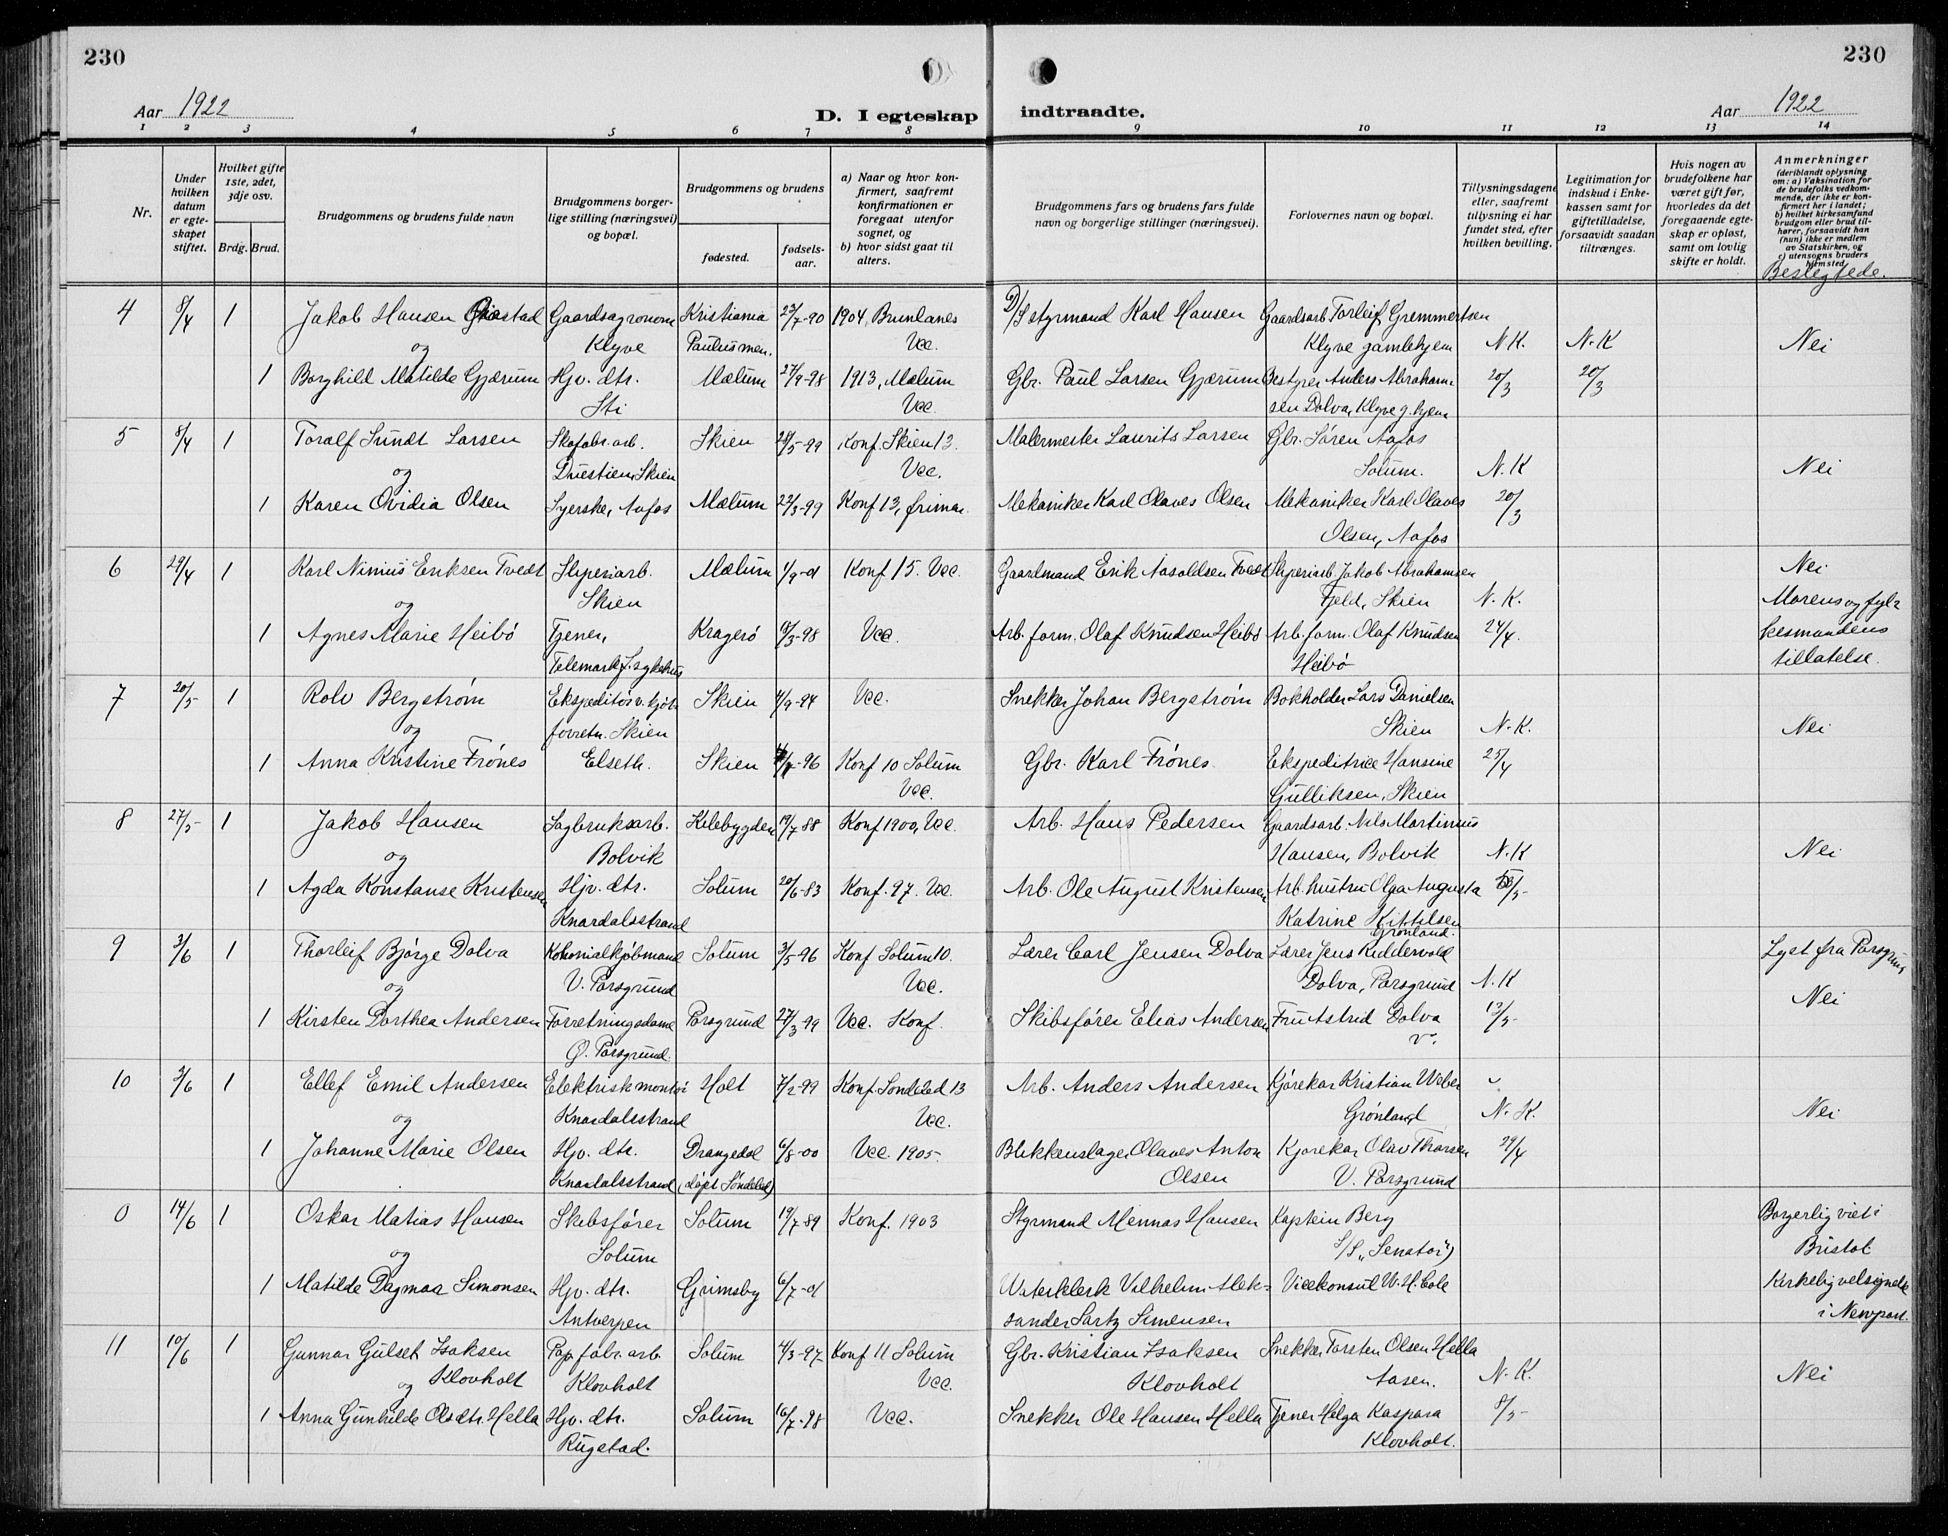 230
230
Aar 1922
D. I egteskap indtraadte.
Aar 1922
1 2 3 4 5 6 7 8 9 10 11 12 13 14
Nr.
Under hvilken datum er egteskapet stiftet.
Hvilket gifte 1ste, 2det, 3dje osv.
Brdg. Brud.
Brudgommens og brudens fulde navn
Brudgommens borgerlige stilling (næringsvei) og bopæl.
Brudgommens og brudens
fødested.
fødselsaar.
a) Naar og hvor konfirmert, saafremt konfirmationen er foregaat utenfor sognet, og
b) hvor sidst gaat til alters.
Brudgommens fars og brudens fars fulde navn og borgerlige stillinger (næringsvei).
Forlovernes navn og bopæl.
Tillysningsdagene eller, saafremt tillysning ei har fundet sted, efter hvilken bevilling.
Legitimation for indskud i Enkekassen samt for giftetilladelse, forsaavidt saadan tiltrænges.
Hvis nogen av brudefolkene har været gift før, hvorledes da det foregaaende egteskap er opløst, samt om lovlig skifte er holdt.
Anmerkninger (deriblandt oplysning om: a) Vaksination for de brudefolks vedkommende, der ikke er konfirmert her i landet; b) hvilket kirkesamfund brudgom eller brud tilhører, forsaavidt han (hun) ikke er medlem av Statskirken, og c) utensogns bruders hjemsted.
Beslegtede.
4 8/4 1 Jakob Hansen Gaardsagronom Kristiania 23/7-90 1904, Brunlanes D/S styrmand Karl Hansen Gaardsarb. Torleif Gremmertsen
og Klyve Paulus men. Vcc. Klyve gamlehjem N.K. N.K Nei
1 Borghild Matilde Gjærum Hjv. dtr. Mælum 27/9-98 1913, Mælum Gbr. Paul Larsen Gjærum Bestyrer Anders Abraham- 20/3 20/3
Sti Vcc. sen Dolva, Klyve g. hjem
5 8/4 1 Toralf Sundt Larsen Skofabr. arb. Skien 28/5-99 Konf. Skien 13. Malermester Laurits Larsen Gbr. Søren Aafos
og Skien Vcc. Solum. N.K Nei
1 Karen Ovidia Olsen Syerske, Aafos Mælum 22/3-99 Konf 13, Mekaniker Karl Olaves Olsen Mekaniker Karl Olaves 20/3
Olsen, Aafos
6 29/4 1 Karl Nimius Eriksen Tvedt Sliperiarb. Mælum 1/9-01 Konf 15. Vcc. Gaardmand Erik Aasoldsen Tvedt Sliperiarb. Jakob Abrahamsen Nei
og Skien Fjeld, Skien N.K. Morens og fyl-
1 Agnes Marie Heibø Tjener, Kragerø 18/3-98 Vcc. Arb. form. Olaf Knudsen Heibø Arb. form. Olaf Knudsen 24/4. kesmandens
Telemark f. sykehus Heibø tillatelse.
7 20/5 1 Rolv Bergstrøm Ekspeditør v. kjøt- Skien 4/9-94 Vcc. Snekker Johan Bergstrøm Bokholder Lars Danielsen
og forretn. Skien Skien N.K. Nei
1 Anna Kristine Frónes Elseth. Skien -96 Konf 10 Solum Gbr. Karl Frónes. Ekspeditrice Hansine 25/4
Vcc. Gulliksen, Skien
8 27/5 1 Jakob Hansen Sagbruksarb. Kilebygden 19/7 88 Konf 1900, Vcc. Arb. Hans Pedersen Gaardsarb. Nils Martinius
og Bolvik Hansen, Bolvik N.K Nei
1 Agda Konstanse Kristensen Hjv. dtr. Solum 20/6-83 Konf. 97. Vcc. Arb. Ole August Kristensen Arb. hustru Olga Augusta
Knardalsstrand Katrine Kittilsen
Grønland.
9 3/6 1 Thorleif Bjørge Dolva Kolonialkjøbmand Solum 3/5-96 Konf Solum 10. Lærer Carl Jensen Dolva Lærer Jens Riddervold Lyst fra Porsgrund
og V. Porsgrund Vcc. Dolva, Porsgrund N.K
1 Kirsten Dorthea Andersen Forretningsdame Porsgrund 27/3-99 Vcc. Konf. Skibsfører Elias Andersen Fru Astrid Dolva 13/5- Nei
Ø. Porsgrund.
10 3/6 1 Ellef Emil Andersen Elektrisk montør Holt 7/2-99 Konf. Søndeled 13 Arb. Anders Andersen Kjørekar Kristian Weber
og Knardalsstrand Vcc. Grønland N.K. Nei
1 Johanne Marie Olsen Hjv. dtr. Drangedal 6/8-00 Vcc. 1905. Blikkenslager Olaves Anton Kjørekar Olav Thorsen 29/4
Knardalsstrand (døpt Søndeled) Olsen V. Porsgrund
0 14/6 1 Oskar Matias Hansen Skibsfører Solum 19/7 89 Konf. 1903 Styrmand Mennas Hansen Kaptein Berg Borgerlig viet i
og Solum S/S "Senator") Bristol
1 Matilde Dagmar Simonsen Hjv. dtr. Grimsby 6/7-01 Waterklerk Vilhelm Alek- Vicekonsul W. H. Cole Kirkelig velsignelse
Antverpen sander Simensen i Newport.
11 10/6 1 Gunnar Gulset Isaksen Pap. fabr. arb. Solum 4/3-97 Konf 11 Solum Gbr. Kristian Isaksen Snekker Torsten Olsen Hella
og Klovholt Klovholt Vcc. Klovholt Aasen. N.K. Nei
1 Anna Gunhilde Olsdtr. Hella Hjv. dtr. Solum 16/7-98 Vcc. Snekker Ole Hansen Hella Tjener Helga Kaspara 8/5-
Rugstad. Klovholt.